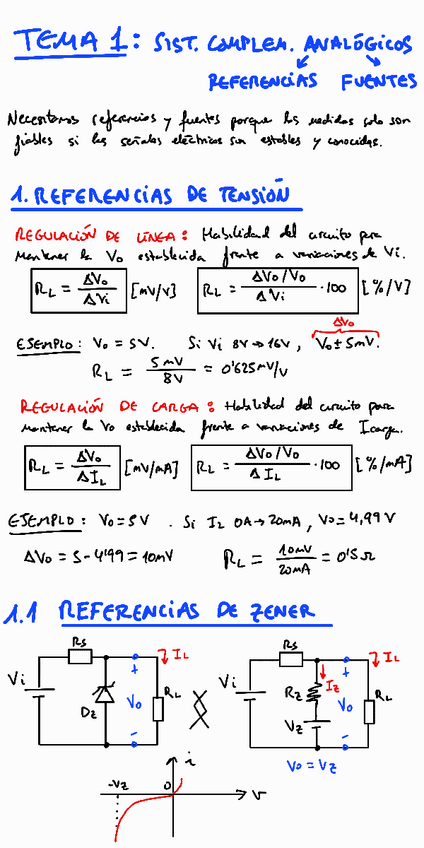 TEMA 1: SIST. COMPLEM. ANALÓGICOS
REFERENCIAS FUENTES
Necesitamos referencias y fuentes porque las medidas solo son
fiables si las señales eléctricas son estables y conocidas.
1. REFERENCIAS DE TENSIÓN
REGULACIÓN DE LÍNEA: Habilidad del circuito para
mantener la Vo establecida frente a variaciones de Vi.
RL = ΔVo / ΔVi [mV/V] RL = (ΔVo/Vo) / ΔVi · 100 [%/V]
ΔVo
EJEMPLO: Vo = 5V. Si Vi 8V → 16V, Vo ± 5mV.
RL = 5mV / 8V = 0'625mV/V
REGULACIÓN DE CARGA: Habilidad del circuito para
mantener la Vo establecida frente a variaciones de Icarga.
RL = ΔVo / ΔIL [mV/mA] RL = (ΔVo/Vo) / ΔIL · 100 [%/mA]
EJEMPLO: Vo = 5V. Si IL 0A → 20mA, Vo = 4,99V
ΔVo = 5 - 4'99 = 10mV RL = 10mV / 20mA = 0'5Ω
1.1 REFERENCIAS DE ZENER
Rs IL Rs IL
Vi + Vi Iz +
Dz Vo RL Rz Vo RL
- Vz -
Vo = Vz
i
-Vz 0 V